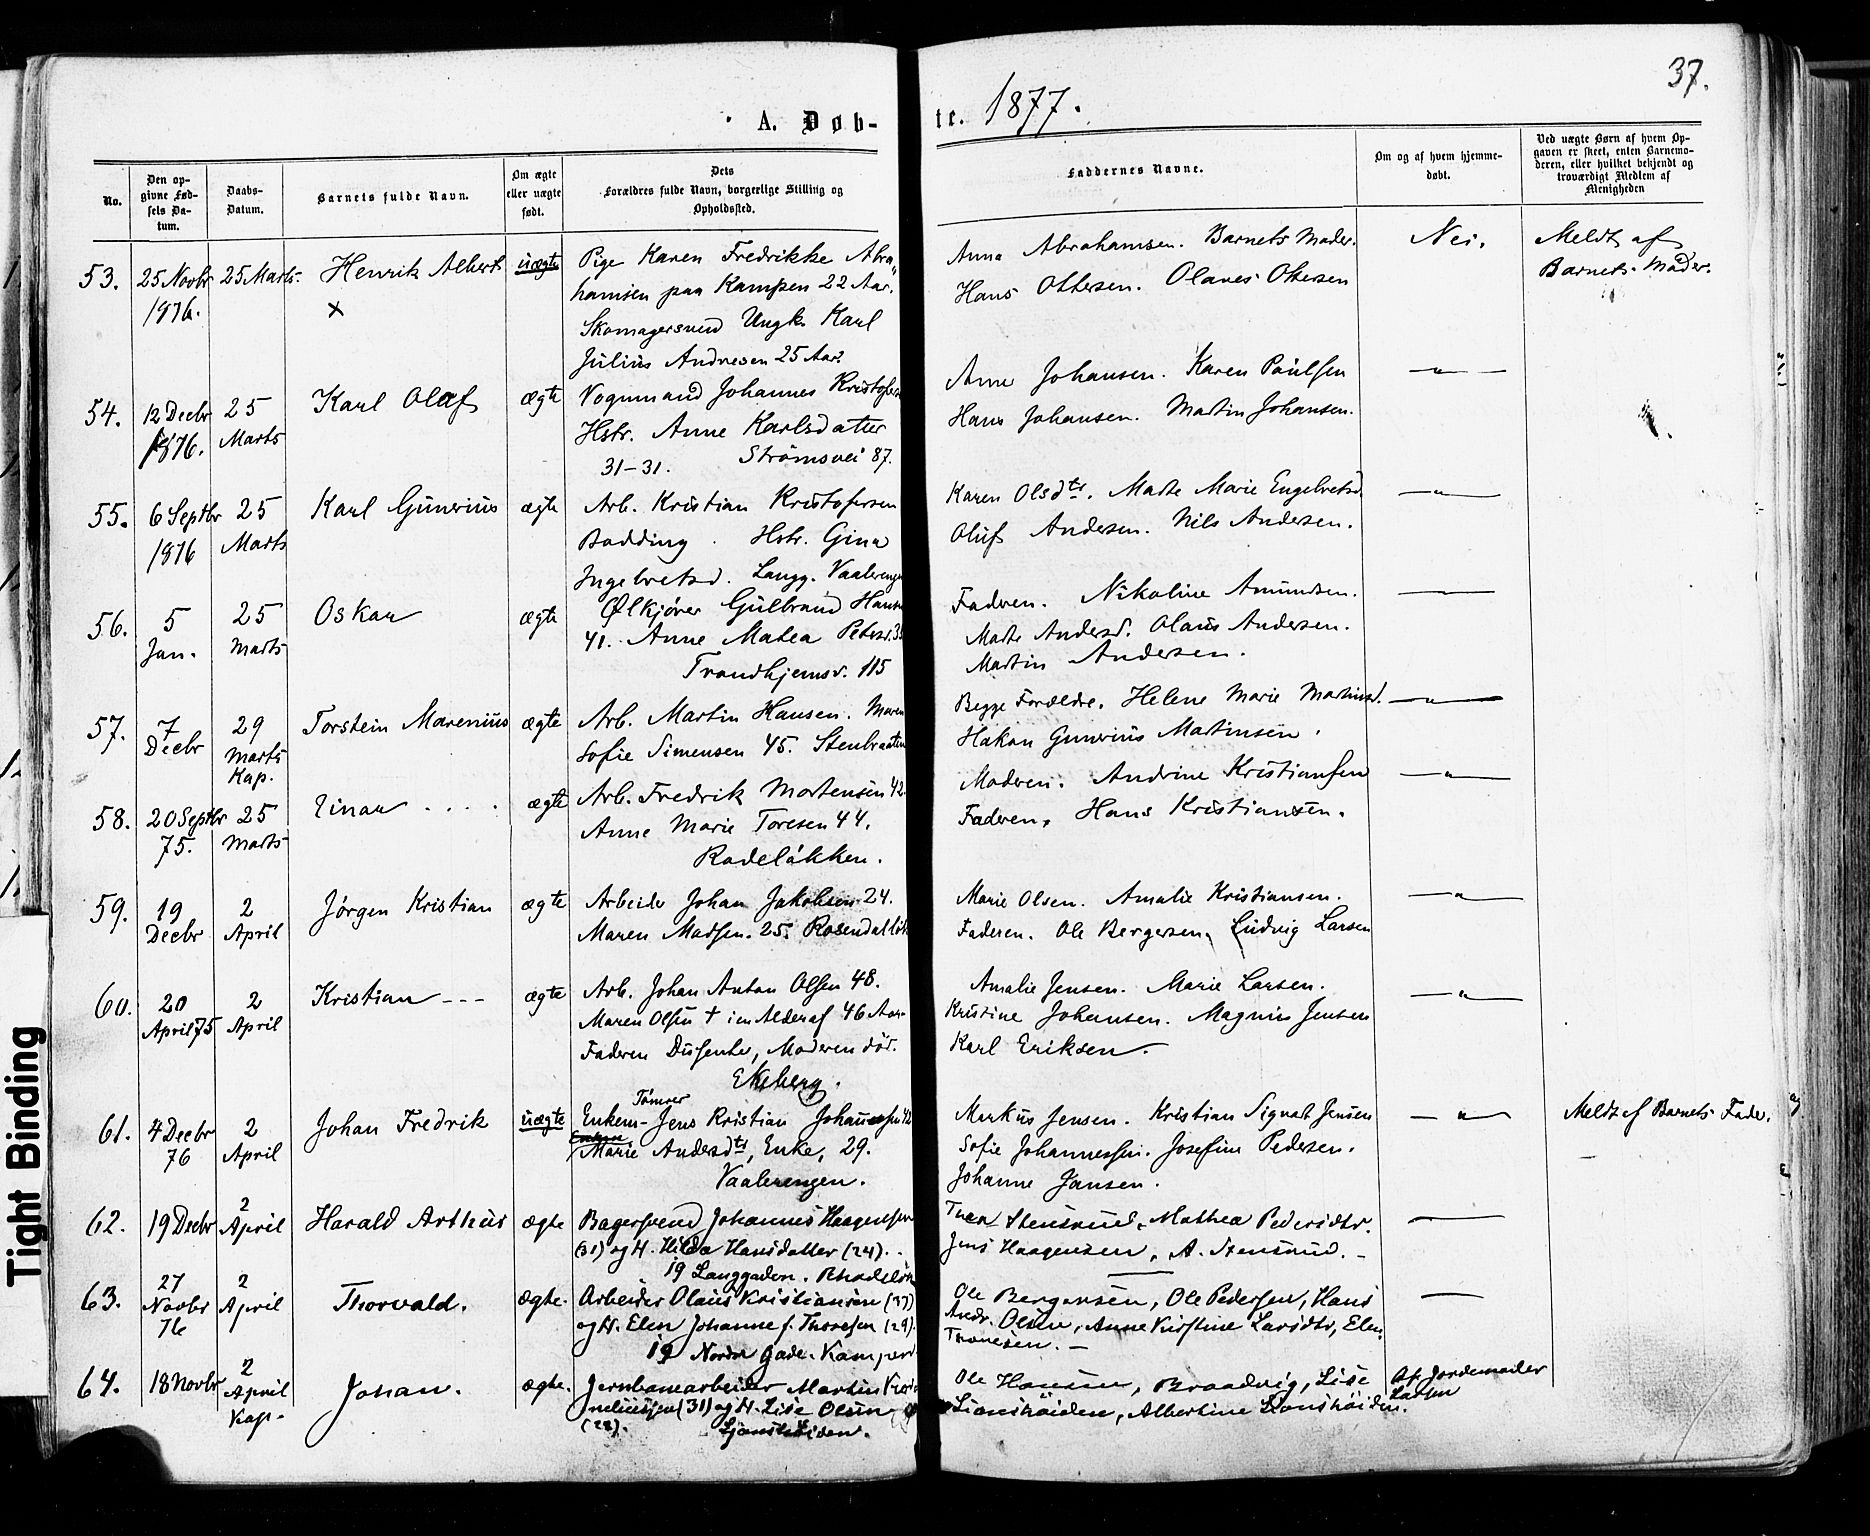 37.
A. Døb-
te. 1877.
No.
Den op-
givne Fød-
sels Da-
tum.
Daabs-
Datum.
Barnets fulde Navn.
Om ægte
eller uægte
født.
Dets
Forældres fulde Navn, borgerlige Stilling og
Opholdssted.
Faddernes Navne.
Om og af hvem hjemme-
døbt.
Ved uægte Børn af hvem Op-
gaven er skeet, enten Barnemo-
deren, eller hvilket bekjendt og
troværdigt Medlem af
Menigheden
53.
25 Novbr
1876.
25 Marts.
Henrik Albert
×
uægte
Pige Karen Fredrikke Abra„
hamsen paa Kampen 22 Aar.
Skomagersvend Ungk. Karl
Julius Andresen 25 Aar.
Anna Abrahamsen. Barnets Moder.
Hans Ottersen. Olaves Ottersen
Nei.
Meldt af
Barnets Moder.
54.
12 Decbr
1876.
25
Marts
Karl Olaf
ægte
Vognmand Johannes Kristofers
Hstr. Anne Karlsdatter
31-31. Strömsvei 87.
Anne Johansen. Karen Paulsen
Hans Johansen. Martin Johansen.
—"—
55.
6 Septbr
1876
25
Marts
Karl Gunerius
ægte
Arb. Kristian Kristofersen
Badding. Hstr. Gina
Ingebretsd. Langg. Vaalereng
Karen Olsdtr. Marte Marie Engebretsd.
Oluf Andersen. Nils Andersen.
—"—
56.
5
Jan.
25
Marts
Oskar
ægte
Ølkjører Gulbrand Hans
41. Anne Matea Peters. 3
Trondhjemsv. 115
Faderen. Nikoline Amundsen.
Marte Andersd. Olaus Andersen.
Martin Andersen.
57.
7
Decbr
29
Marts
Kap.
Torstein Marenius
ægte
Arb. Martin Hansen. Maren
Sofie Simensen 45. Stenbraaten
Begge Forældre. Helene Marie Martinsd.
Hakon Gunerius Martinsen.
—"—
58.
20 Septbr
75.
25
Marts
Einar
ægte
Arb. Fredrik Mortensen 42.
Anne Marie Toresen 44.
Rodeløkken.
Moderen. Andrine Kristiansen
Faderen. Hans Kristiansen.
—"—
59.
19
Decbr
2
April
Jørgen Kristian
ægte
Arbeider Johan Jakobsen 24.
Maren Madsen. 25. Rosendalløk
Marie Olsen. Amalie Kristiansen.
Faderen. Ole Bergersen. Ludvig Larsen
—"—
60.
20
April 75
2
April
Kristian ---
ægte
Arb. Johan Anton Olsen 48.
Maren Olsen † i en Alder af 46 Aar.
Faderen Dissenter, Moderen död.
Ekeberg.
Amalie Jensen. Marie Larsen.
Kristine Johansen. Magnus Jensen
Karl Eriksen.
—"—
61.
4 Decbr
76
2
April
Johan Fredrik
uægte
Tømrer
Enkem- Jens Kristian Johannesen 42
Enken
Marie Andersdtr, Enke, 29.
Vaalerengen.
Markus Jensen. Kristian Signat Jensen
Sofie Johannessen. Josefine Pedersen.
Johanne Jansen.
—"—
Meldt af Barnets Fader.
62.
19 Decbr
2
April
Harald Arthur
ægte
Bagersvend Johannes Haagensen
(31) og H. Hilda Hansdatter (24).
19 Langgaden. Rhodeløk
Thea Stensrud, Mathea Pedersdtr.
Jens Haagensen, A. Stensrud. -
—
63.
27
Novbr
76
2
April
Thorvald.
ægte.
Arbeider Olaus Kristiansen (37)
og H. Elen Johanne f. Thoresen (29).
19 Nordre Gade. Kampen
Ole Bergersen, Ole Pedersen, Hans
Andr. Olsen, Anne Kirstine Larsdtr, Elen
Thoresen. -
—
64.
18 Novbr
2
April
Kap-
Johan.
ægte.
Jernbanearbeider Martin
(31) og H. Lise Olsen
(22).
Ljanshøiden.
Ole Hansen, Braadvig, Lise
Lianshøiden, Albertine Lianshøiden.
Af Jordemoder
Larsen
Tight Binding